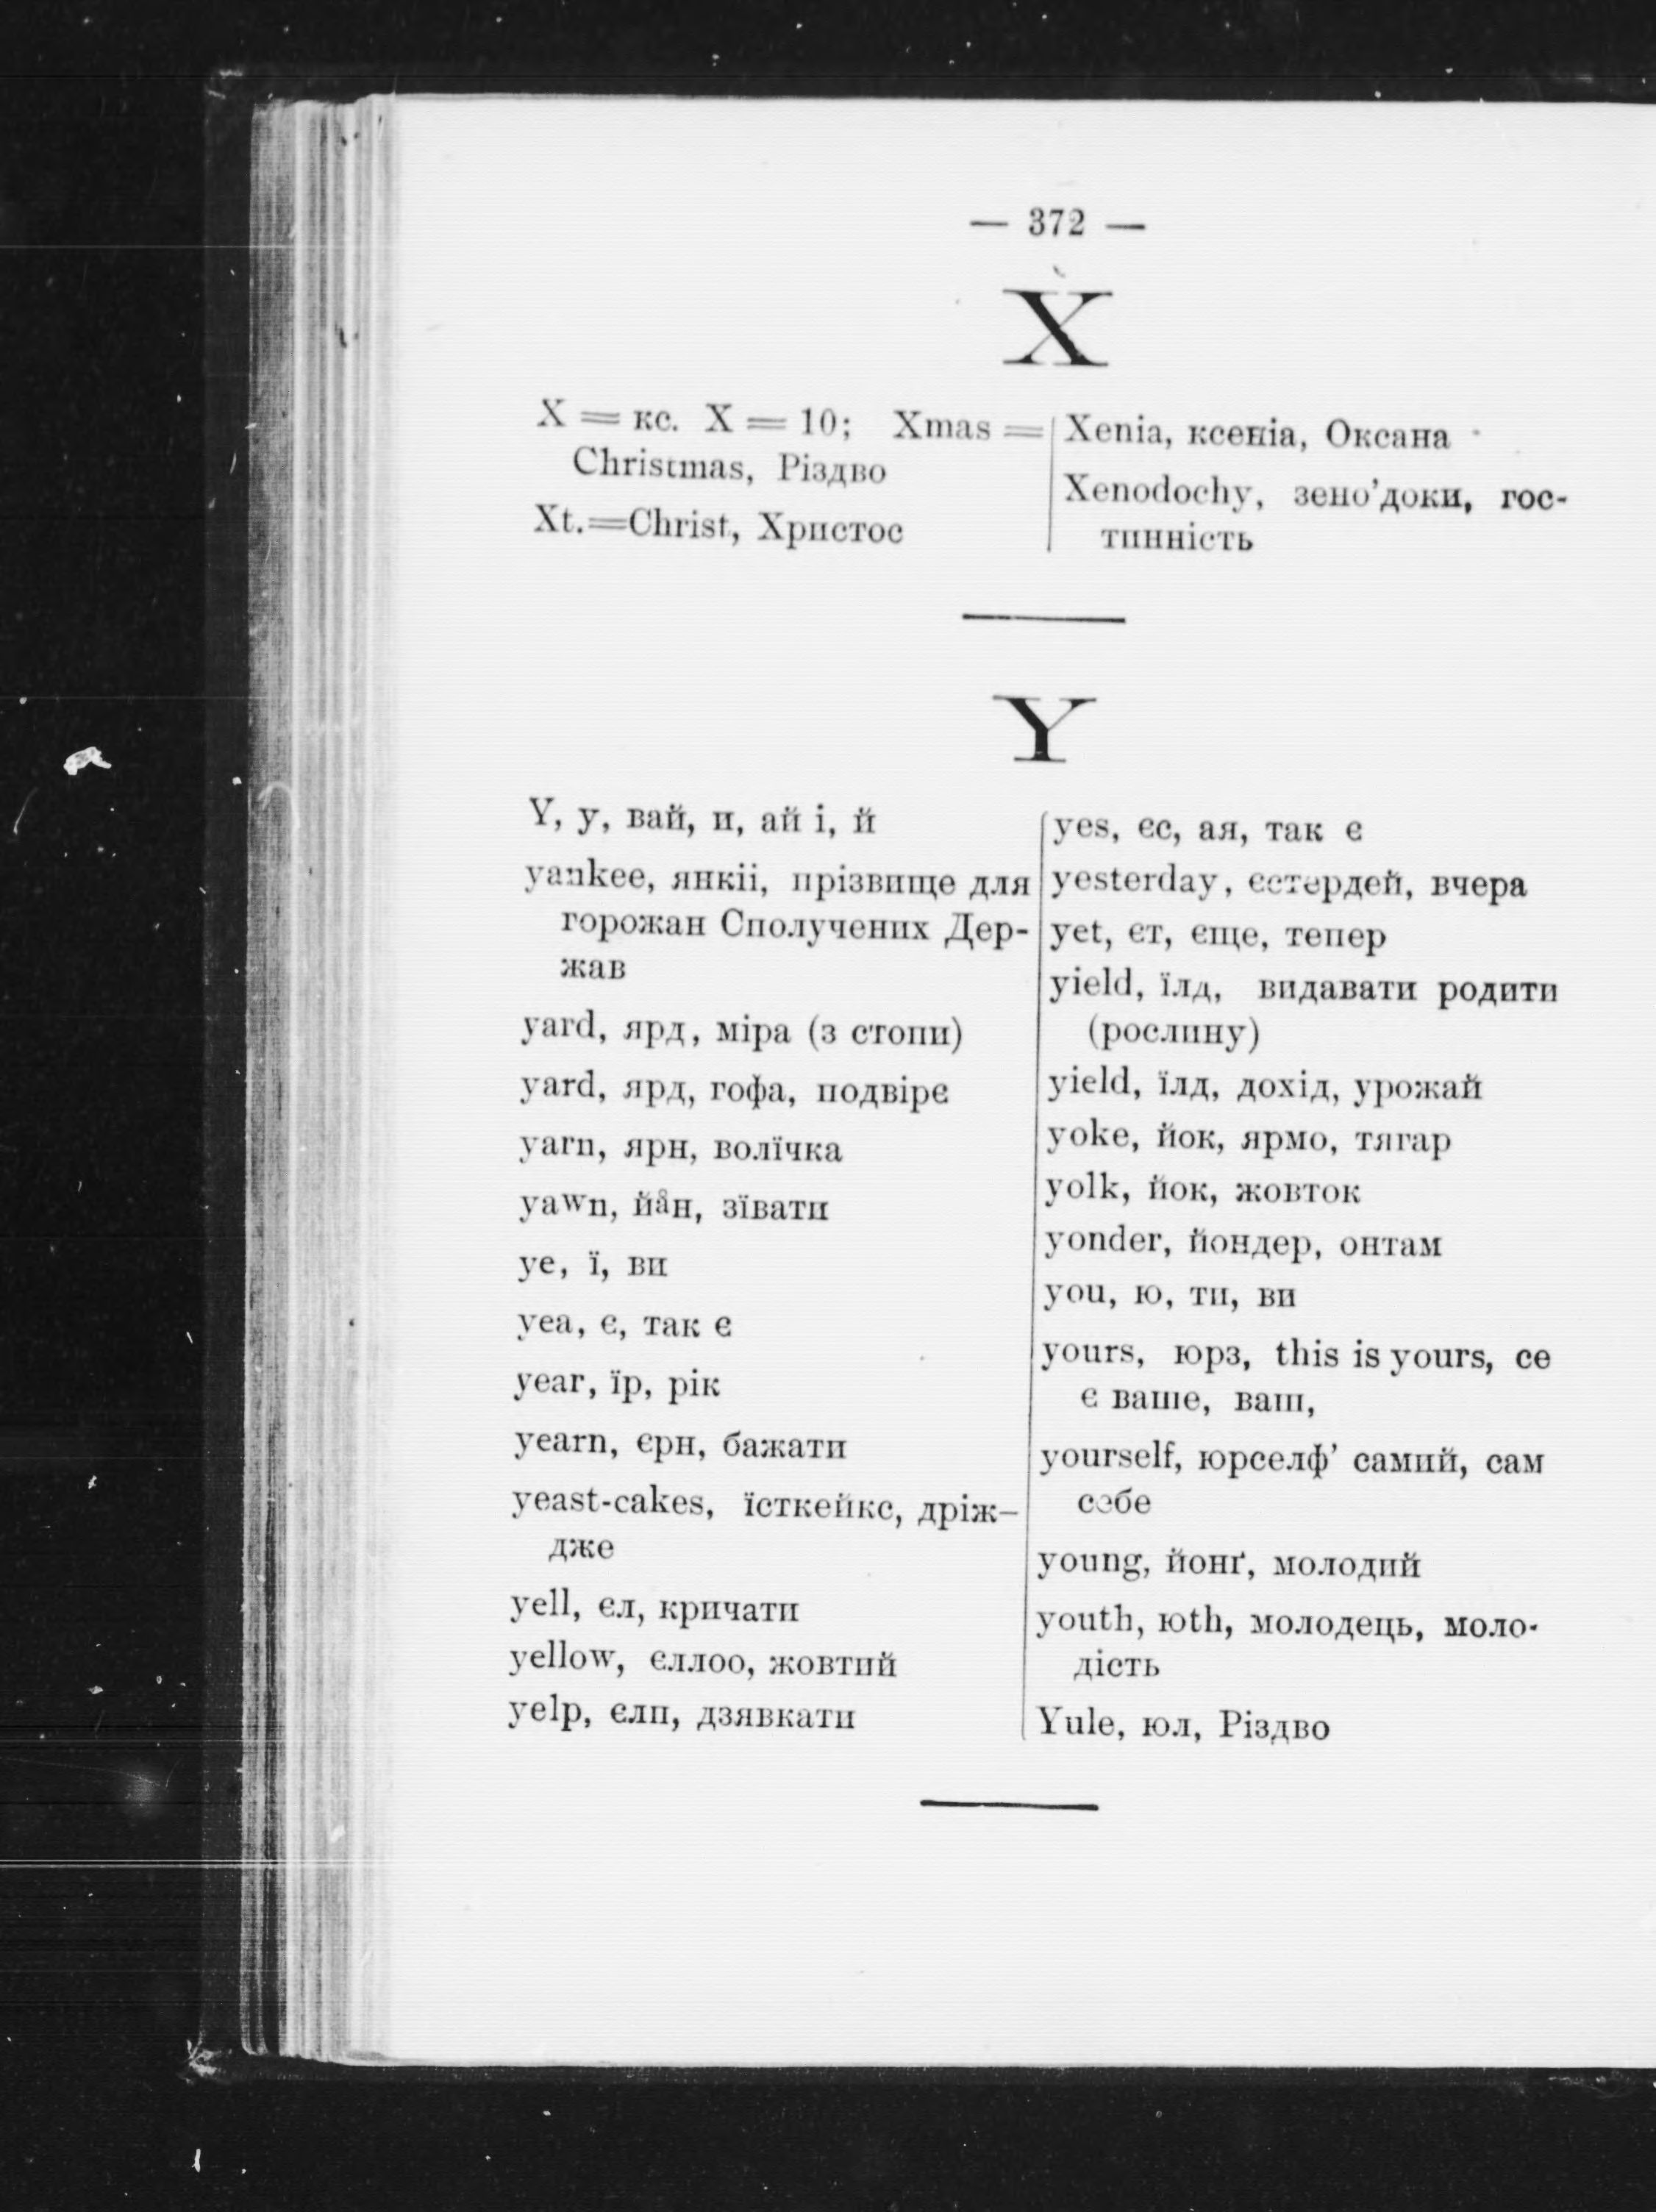 — 372 —
X
X = кс. X = 10; Xmas =
Christmas, Різдво
Xt.=Christ, Христос
Xenia, ксенія, Оксана
Xenodochy, зено’доки, гос-
тинність
Y
Y, y, вай, и, ай і, й
yankee, янкіі, прізвище для
горожан Сполучених Дер-
жав
yard, ярд, міра (3 стопи)
yard, ярд, гофа, подвірє
yarn, ярн, волїчка
yawn, йа̊н, зївати
ye, ї, ви
yea, є, так є
year, їр, рік
yearn, єрн, бажати
yeast-cakes, їсткейкс, дріж-
дже
yell, єл, кричати
yellow, єллоо, жовтий
yelp, єлп, дзявкати
yes, єс, ая, так є
yesterday, єстердей, вчера
yet, єт, єще, тепер
yield, їлд, видавати родити
(рослину)
yield, їлд, дохід, урожай
yoke, йок, ярмо, тягар
yolk, йок, жовток
yonder, йондер, онтам
you, ю, ти, ви
yours, юрз, this is yours, се
є ваше, ваш,
yourself, юрселф’ самий, сам
себе
young, йонґ, молодий
youth, юth, молодець, моло-
дість
Yule, юл, Різдво